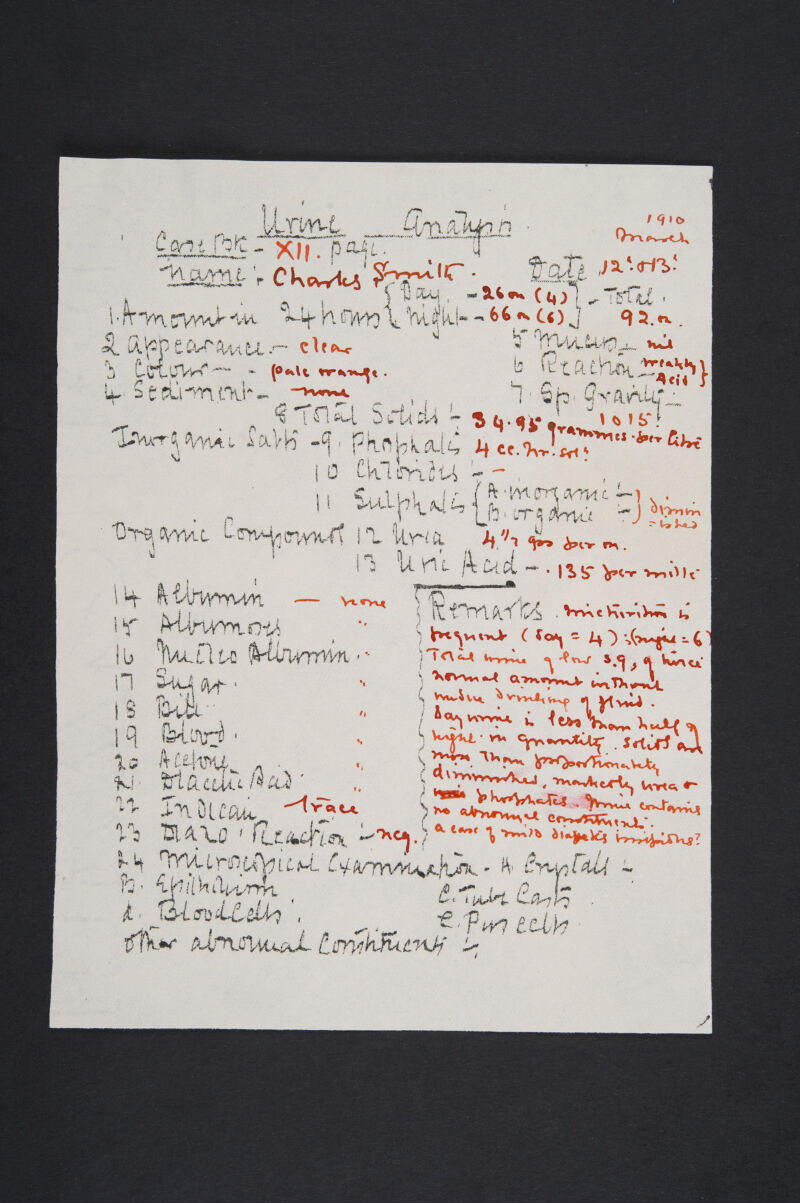 Urine Analysis
1910
Case Bk - XII. page.
March
Name :- Charles Smith.
Date 12: & 13:
1. Amount in 24 hours { Day. - 26 oz (4) } - Total.
{ night - 66 oz (6) } 92. oz.
2 appearance - clear
5 Mucus - nil
3 Colour - - pale orange.
6 Reaction - weakly Acid }
4 Sediment - none
7. Sp. Gravity - 1015:
8 Total Solids - 34.95 grammes per litre
Inorganic Salts - 9. Phosphates 4 cc. hr. sol:
10 Chlorides - -
11 Sulphates { A. inorganic - } dimin
{ B. organic - } =ished
Organic Compounds 12 Urea 4 1/2 grs per oz.
13 Uric Acid - .135 per mille
14 Albumin - none
15 Albumoses "
16 Nucleo Albumin. "
17 Sugar. "
18 Bile "
19 Blood. "
20 Acetone "
21. Diacetic Acid "
22 Indican - trace
23 Diazo. Reaction - neg.
Remarks. micturition is
frequent (day = 4) : (night = 6)
Total urine of low s.g., of twice
normal amount without
undue drinking of fluid.
Day urine is less than half of
night in quantity. Solids are
more than proportionately
diminished, markedly urea &
phosphates. Urine contains
no abnormal constituents.
a case of mild diabetes insipidus?
24 Microscopical Examination - A. Crystals -
B. Epithelium
C. Tube Casts
d. Blood Cells.
E. Pus cells
other abnormal Constituents -